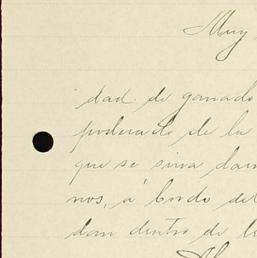 Muy
dad de ganado
poderado de la
que se sirva dar
nos, á bordo del
dan dentro de l